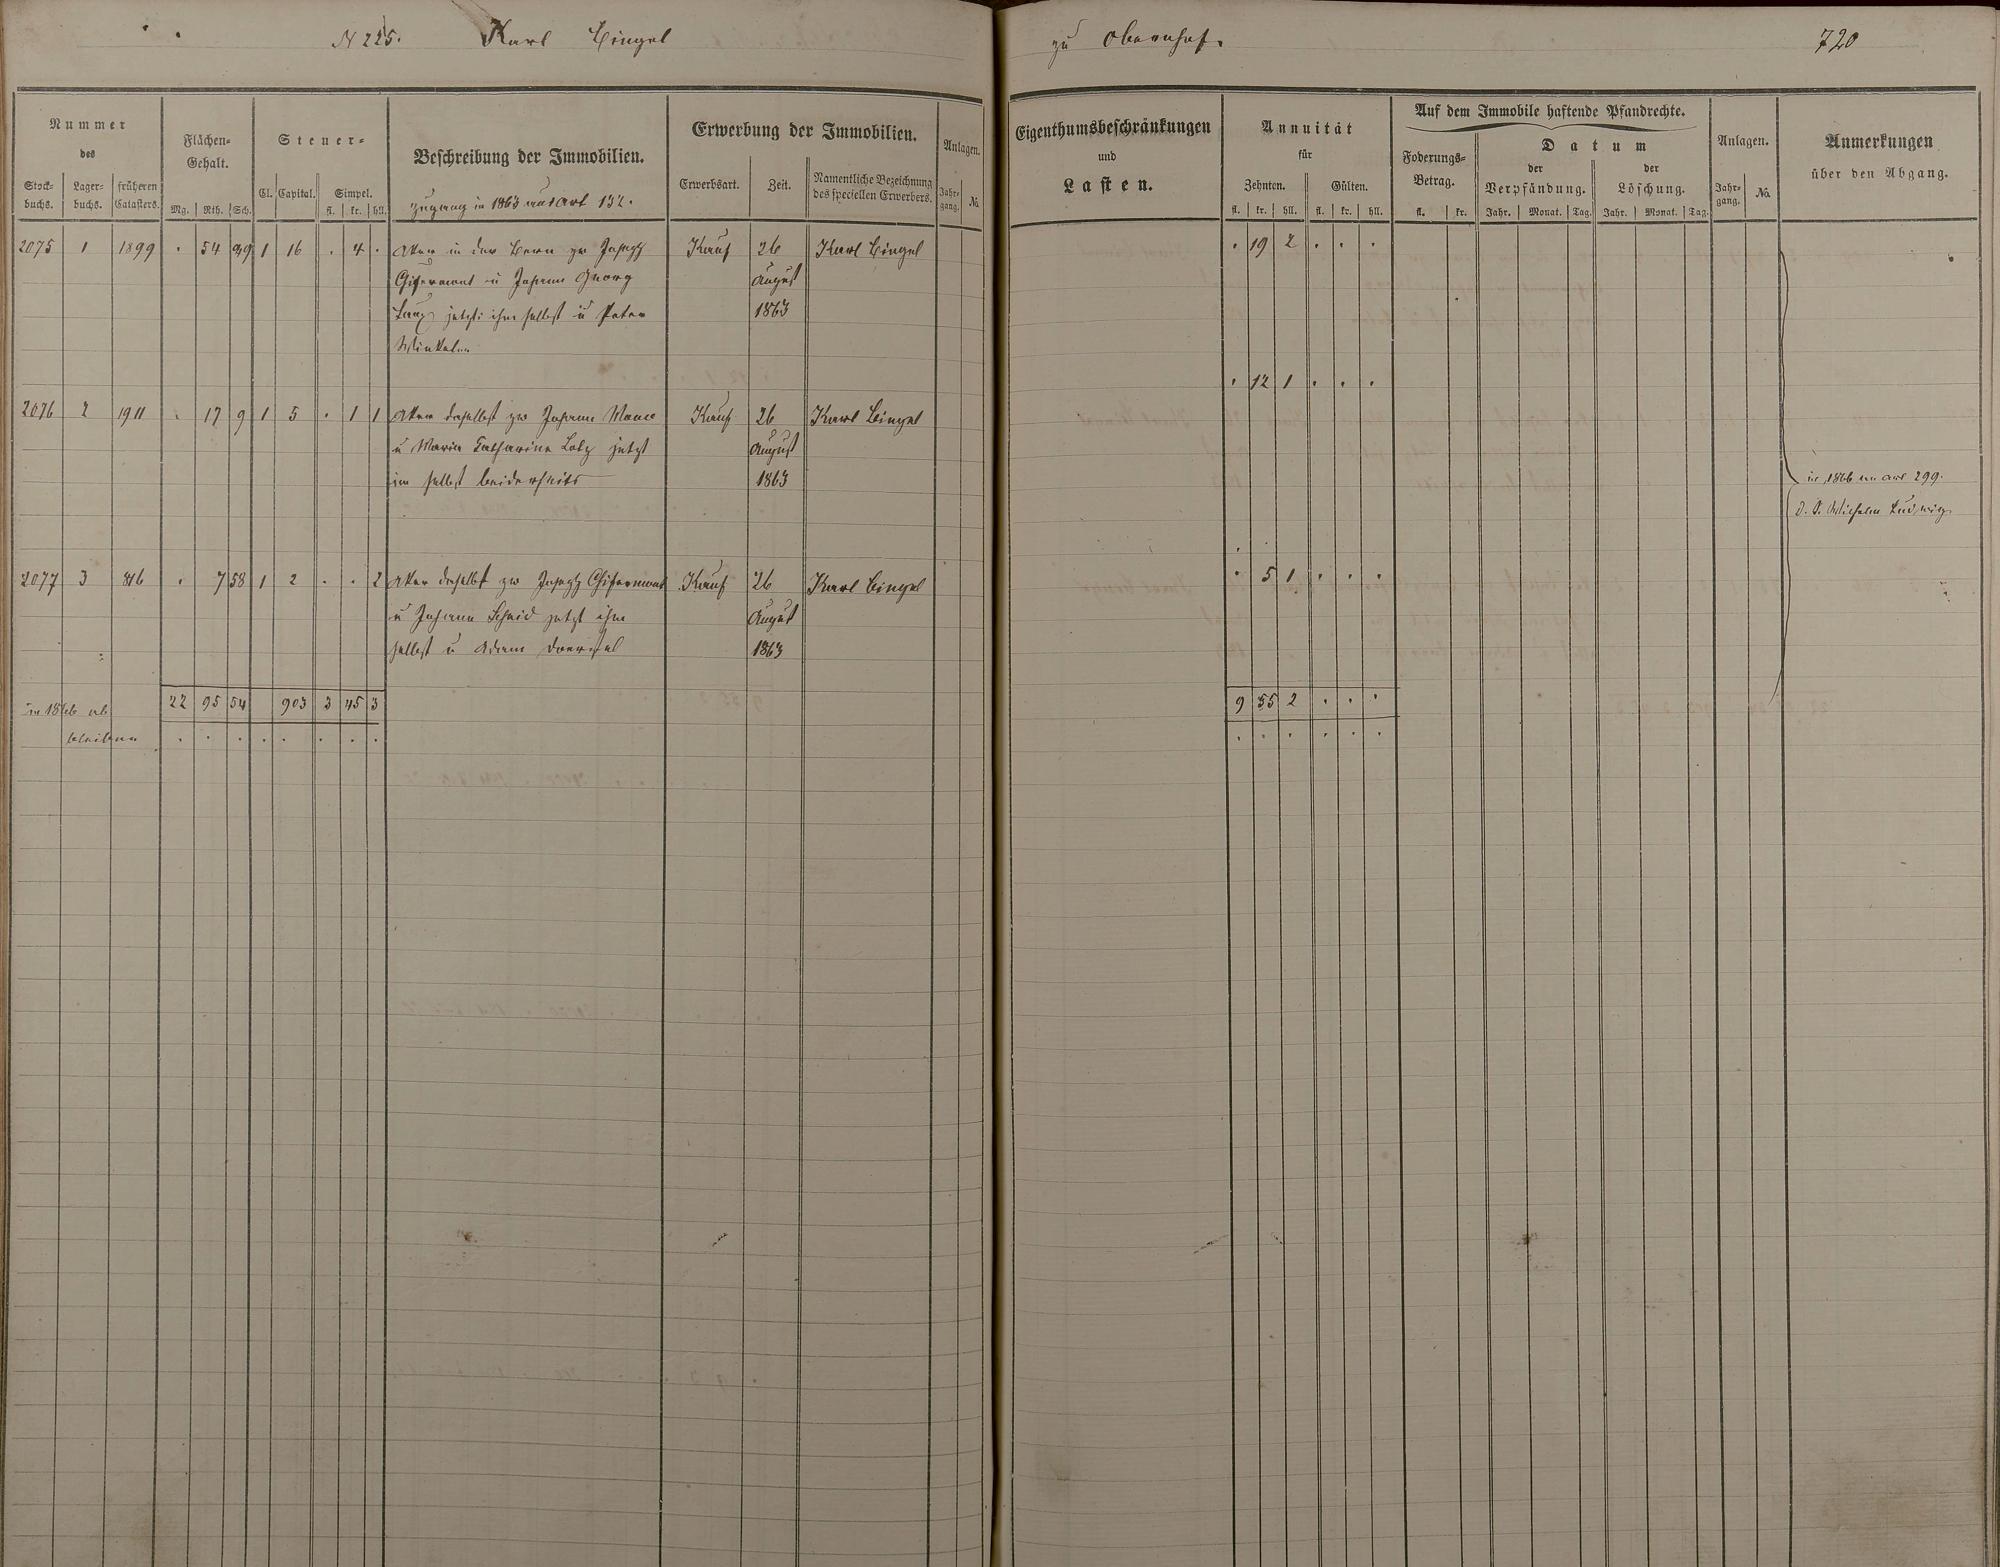 N 225. Karl Bingel
zu Obernhof.
720
Nummer
des
Stock-
buchs.
Lager-
buchs.
früheren
Catasters.
Flächen-
Gehalt.
Mg. Rth. Sch.
Steuer-
Cl. Capital. Simpel.
fl. kr. hll.
Beschreibung der Immobilien.
Zugang in 1863 aus Art 132.
Erwerbung der Immobilien.
Erwerbsart. Zeit.
Namentliche Bezeichnung
des speciellen Erwerbers.
Anlagen.
Jahr-
gang.
No.
Eigenthumsbeschränkungen
und
Lasten.
Annuität
für
Zehnten. Gülten.
fl. kr. hll. fl. kr. hll.
Auf dem Immobile haftende Pfandrechte.
Foderungs-
Betrag.
fl. kr.
Datum
der
Verpfändung.
der
Löschung.
Jahr. Monat. Tag. Jahr. Monat. Tag.
Anlagen.
Jahr-
gang.
No.
Anmerkungen
über den Abgang.
2075 1 1899 . 54 49 1 16 . 4 . Aker in der Bern zw Joseph Kauf 26 Karl Bingel . 19 2 . . .
u Johann Georg August
jetzt ihm selbst u Peter 1863
Winkel
. 12 1 . . .
2076 2 1911 . 17 9 1 5 . 1 1 Aker daselbst zw Johann Kauf 26 Karl Bingel
u Maria Catharine Lotz jetzt August
im selbst beiderseits 1863
in 1866 an art 299.
d. d. Wilhelm Ludwig
2077 3 816 . 7 58 1 2 . . 2 Aker daselbst zw Joseph Kauf 26 Karl Bingel . 5 1 . . .
u Johann Scheid jetzt ihm August
selbst u Adam 1863
22 95 54 903 3 45 3 9 55 2 . . .
in 1866 ab
bleiben . . . . . . . . . . . . . .